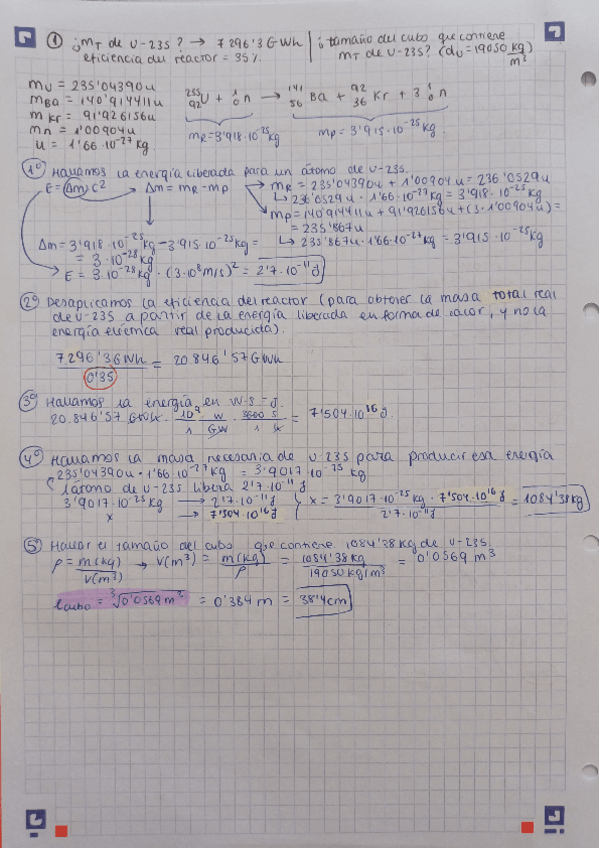 ① ¿mT de U-235? → 7296'3 GWh | ¿tamaño del cubo que contiene
eficiencia del reactor = 35% | mT de U-235? (dU = 19050 kg/m³)
mU = 235'04390u
mBa = 140'914411u
mKr = 91'926156u
mn = 1'00904u
u = 1'66·10⁻²⁷kg
²³⁵₉₂U + ¹₀n → ¹⁴¹₅₆Ba + ⁹²₃₆Kr + 3 ¹₀n
mR = 3'918·10⁻²⁵kg mP = 3'915·10⁻²⁵kg
1º Hallamos la energía liberada para un átomo de U-235.
E = Δm c² Δm = mR - mP → mR = 235'04390u + 1'00904u = 236'0529u
↳ 236'0529u · 1'66·10⁻²⁷kg = 3'918·10⁻²⁵kg
mP = 140'914411u + 91'926156u + (3·1'00904u) =
= 235'867u
Δm = 3'918·10⁻²⁵kg - 3'915·10⁻²⁵kg = ↳ 235'867u · 1'66·10⁻²⁷kg = 3'915·10⁻²⁵kg
= 3·10⁻²⁸kg
E = 3·10⁻²⁸kg · (3·10⁸m/s)² = 2'7·10⁻¹¹J
2º Desaplicamos la eficiencia del reactor (para obtener la masa total real
de U-235 a partir de la energía liberada en forma de calor, y no la
energía eléctrica real producida).
7.296'3 GWh / 0'35 = 20.846'57 GWh
3º Hallamos la energía en W·s = J.
20.846'57 GWh · 10⁹/1 W/GW · 3600 s/1 h = 7'504·10¹⁶J.
4º Hallamos la masa necesaria de U-235 para producir esa energía
235'04390u · 1'66·10⁻²⁷kg = 3'9017·10⁻²⁵kg
1 átomo de U-235 libera 2'7·10⁻¹¹J
3'9017·10⁻²⁵kg → 2'7·10⁻¹¹J } x = 3'9017·10⁻²⁵kg · 7'504·10¹⁶J / 2'7·10⁻¹¹J = 1084'38kg
x → 7'504·10¹⁶J
5º Hallar el tamaño del cubo que contiene 1084'38 kg de U-235.
ρ = m(kg)/V(m³) → V(m³) = m(kg)/ρ = 1084'38kg / 19050kg/m³ = 0'0569 m³
lcubo = ³√0'0569m³ = 0'384 m = 38'4cm